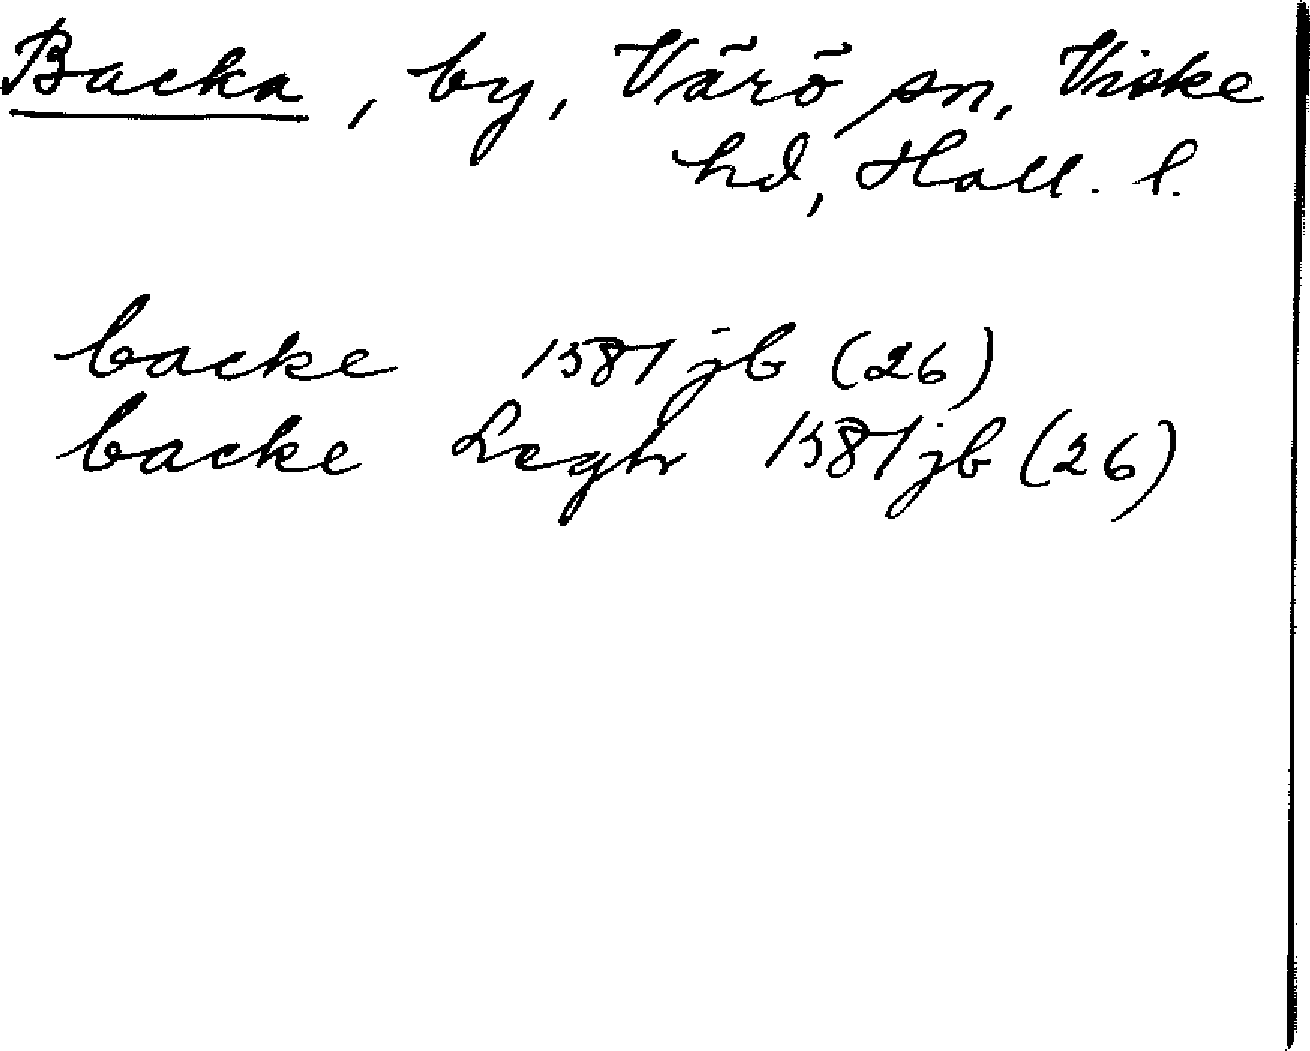 Backa, by, Värö sn, Viske
hd, Hall. l.
backe 1581 jb (26)
backe Legh 1581 jb (26)